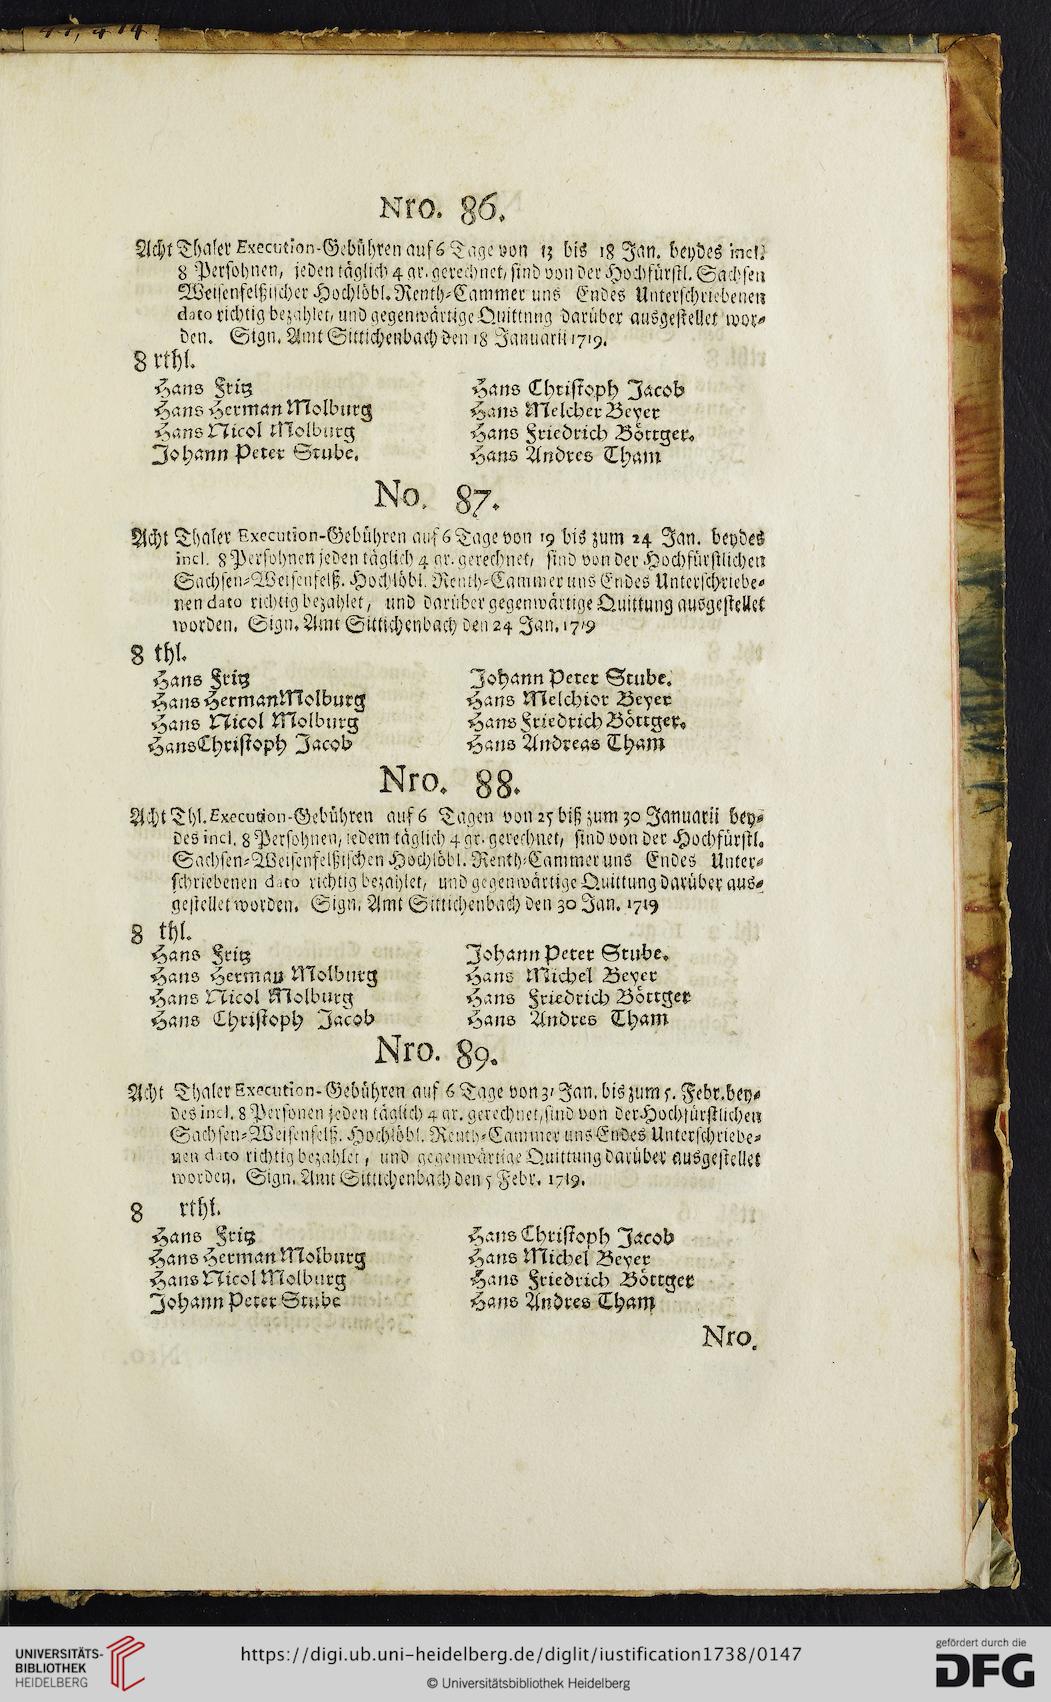 Nro. 86.
Acht Thaler Execution-Gebühren auf 6 Tage von 13 bis 18 Jan. beydes incl.
8 Persohnen, jeden täglich 4 gr. gerechnet, sind von der Hochfürstl. Sachsen
Weisenfelßischer Hochlöbl. Renth-Cammer uns Endes Unterschriebenen
dato richtig bezahlet, und gegenwärtige Quittung darüber ausgestellet wor-
den. Sign. Amt Sittichenbach den 18 Januarii 1719.
8 rthl.
Hans Fritz
Hans Herman Molburg
Hans Nicol Molburg
Johann Peter Stube.
Hans Christoph Jacob
Hans Melcher Beyer
Hans Friedrich Böttger.
Hans Andres Tham
No. 87.
Acht Thaler Execution-Gebühren auf 6 Tage von 19 bis zum 24 Jan. beydes
incl. 8 Persohnen jeden täglich 4 gr. gerechnet, sind von der Hochfürstlichen
Sachsen-Weisenfelß. Hochlöbl. Renth-Cammer uns Endes Unterschriebe-
nen dato richtig bezahlet, und darüber gegenwärtige Quittung ausgestellet
worden. Sign. Amt Sittichenbach den 24 Jan. 1719
8 thl.
Hans Fritz
Hans Herman Molburg
Hans Nicol Molburg
Hans Christoph Jacob
Johann Peter Stube.
Hans Melchior Beyer
Hans Friedrich Böttger.
Hans Andreas Tham
Nro. 88.
Acht Thl. Execution-Gebühren auf 6 Tagen von 25 biß zum 30 Januarii bey-
des incl. 8 Persohnen, jedem täglich 4 gr. gerechnet, sind von der Hochfürstl.
Sachsen-Weisenfelßischen Hochlöbl. Renth-Cammer uns Endes Unter-
schriebenen dato richtig bezahlet, und gegenwärtige Quittung darüber aus-
gestellet worden. Sign. Amt Sittichenbach den 30 Jan. 1719
8 thl.
Hans Fritz
Hans Herman Molburg
Hans Nicol Molburg
Hans Christoph Jacob
Johann Peter Stube.
Hans Michel Beyer
Hans Friedrich Böttger
Hans Andres Tham
Nro. 89.
Acht Thaler Execution-Gebühren auf 6 Tage von 31 Jan. bis zum 5. Febr. bey-
des incl. 8 Personen jeden täglich 4 gr. gerechnet, sind von der Hochfürstlichen
Sachsen-Weisenfelß. Hochlöbl. Renth-Cammer uns Endes Unterschriebe-
nen dato richtig bezahlet, und gegenwärtige Quittung darüber ausgestellet
worden. Sign. Amt Sittichenbach den 5 Febr. 1719.
8 rthl.
Hans Fritz
Hans Herman Molburg
Hans Nicol Molburg
Johann Peter Stube
Hans Christoph Jacob
Hans Michel Beyer
Hans Friedrich Böttger
Hans Andres Tham
Nro.
UNIVERSITÄTS-
BIBLIOTHEK
HEIDELBERG
https://digi.ub.uni-heidelberg.de/diglit/iustification1738/0147
© Universitätsbibliothek Heidelberg
gefördert durch die
DFG